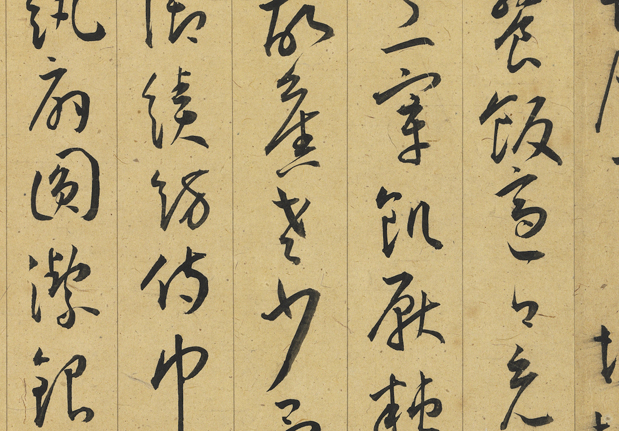 餐飯適口充
宰飢厭糟
故舊老少異
御績紡侍巾
紈扇圓潔銀